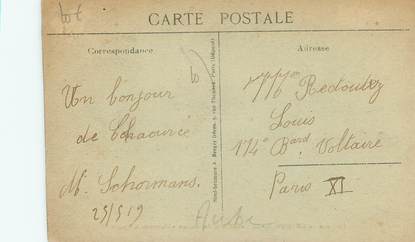 CARTE POSTALE
Correspondance
Adresse
Un bonjour
de Chaource
M. Schormans.
25/5 19
Mme Redoutez
Louis
174 Bard Voltaire
Paris XI
Aube